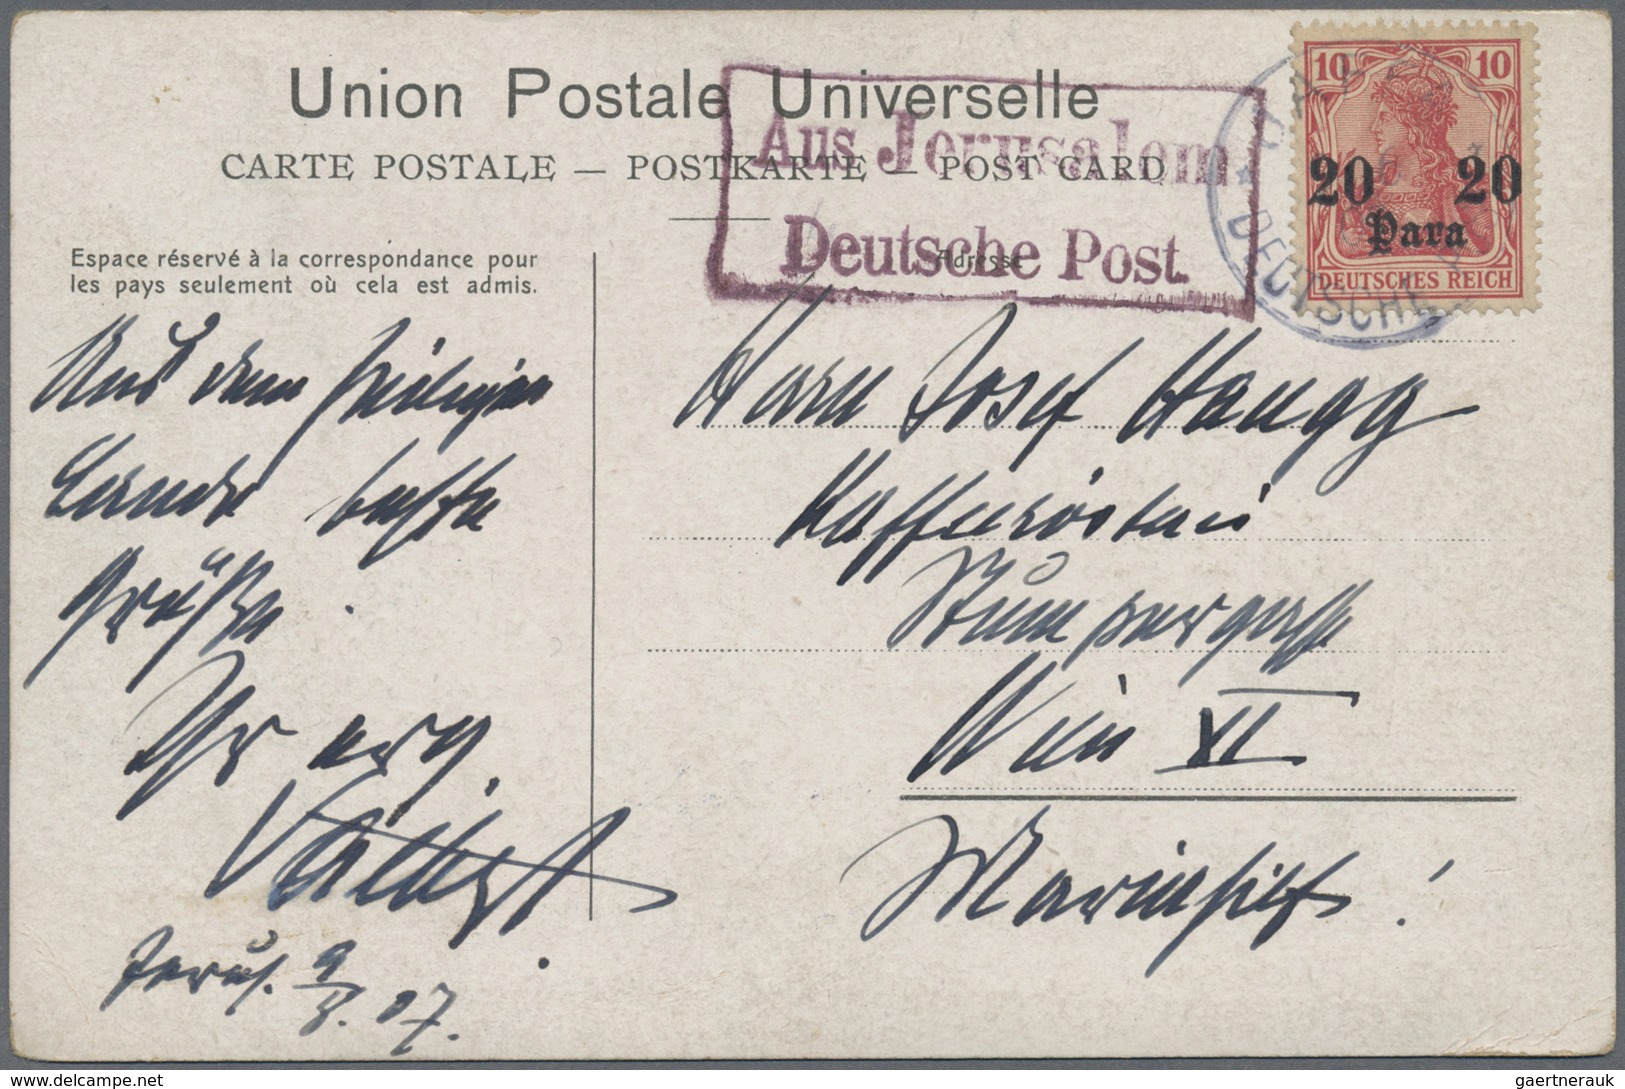 Union Postale Universelle
CARTE POSTALE — POSTKARTE — POST CARD
Aus Jerusalem
Deutsche Post.
10 10
20 20
Para
DEUTSCHES REICH
JAFFA
DEUTSCHE
Espace réservé à la correspondance pour
les pays seulement où cela est admis.
Adresse
Aus dem heiligen
Lande beste
Grüße.
Ihr erg.
Jerus. 9/8. 07.
Herrn Josef Haugg
Kafferösterei
Stumpergasse
Wien VI
Mariahilf!
gaertnerauk